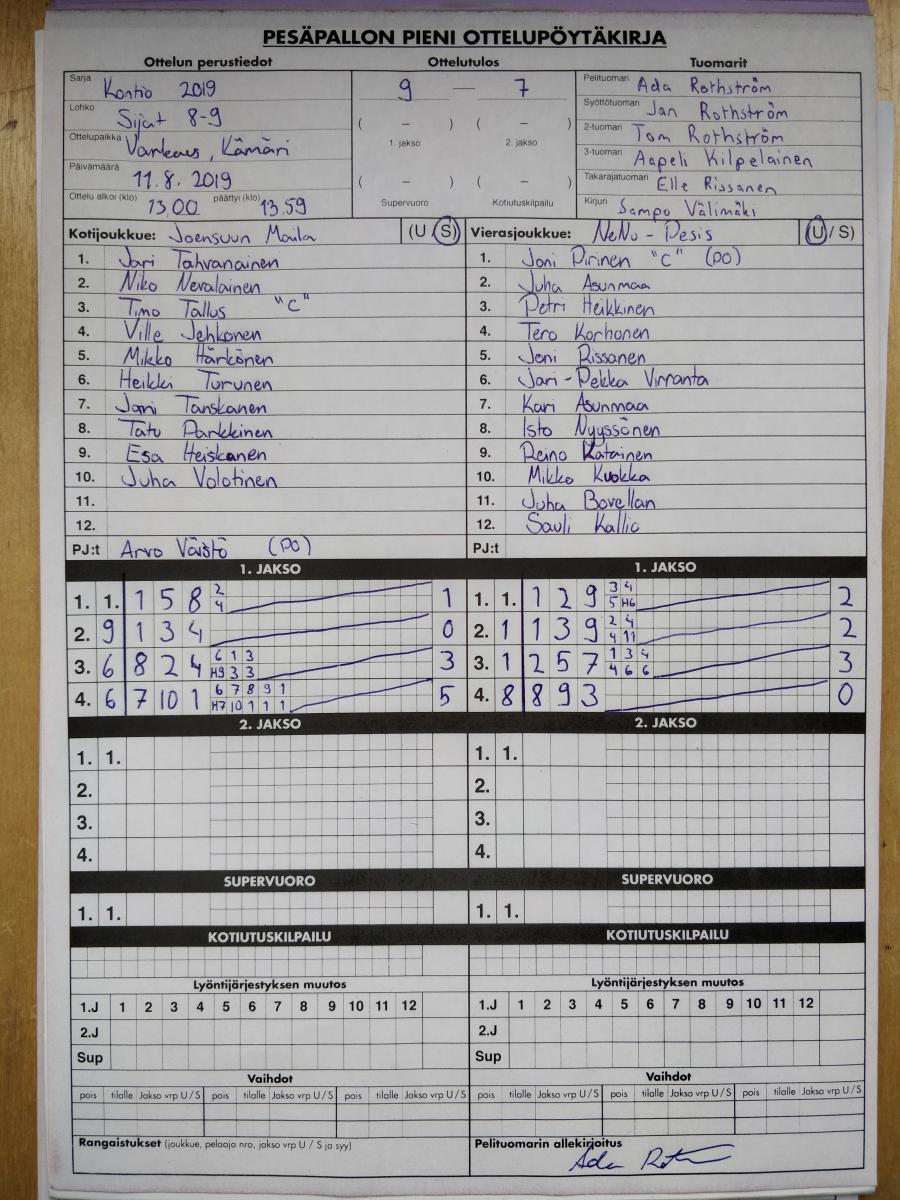 PESÄPALLON PIENI OTTELUPÖYTÄKIRJA
Ottelun perustiedot Ottelutulos Tuomarit
Sarja Kontio 2019 9 — 7 Pelituomari Ada Rothström
Lohko Sijat 8-9 Syöttötuomari Jan Rothström
Ottelupaikka Varkaus, Kämäri ( – ) ( – ) 2-tuomari Tom Rothström
1. jakso 2. jakso 3-tuomari Aapeli Kilpeläinen
Päivämäärä 11.8.2019 ( – ) ( – ) Takarajatuomari Elle Rissanen
Ottelu alkoi (klo) 13.00 päättyi (klo) 13.59 Supervuoro Kotiutuskilpailu Kirjuri Sampo Välimäki
Kotijoukkue: Joensuun Maila (U/S) Vierasjoukkue: NeNu - Pesis (U/S)
1. Jari Tahvanainen 1. Joni Pirinen "C" (PO)
2. Niko Nevalainen 2. Juha Asunmaa
3. Timo Tallus "C" 3. Petri Heikkinen
4. Ville Jehkonen 4. Tero Korhonen
5. Mikko Härkönen 5. Joni Rissanen
6. Heikki Turunen 6. Jari-Pekka Virranta
7. Jani Tanskanen 7. Kari Asunmaa
8. Tatu Parkkinen 8. Isto Nyyssönen
9. Esa Heiskanen 9. Reino Katainen
10. Juha Volotinen 10. Mikko Kuokka
11. 11. Juha Bovellan
12. 12. Sauli Kallio
PJ:t Arvo Väistö (PO) PJ:t
1. JAKSO 1. JAKSO
1. 1. 1 5 8 2 4 1 1. 1. 1 2 9 3 4 5 H6 2
2. 9 1 3 4 0 2. 1 1 3 9 2 4 4 11 2
3. 6 8 2 4 6 1 3 H9 3 3 3 3. 1 2 5 7 1 3 4 4 6 6 3
4. 6 7 10 1 6 7 8 9 1 H7 10 1 1 1 5 4. 8 8 9 3 0
2. JAKSO 2. JAKSO
1. 1. 1. 1.
2. 2.
3. 3.
4. 4.
SUPERVUORO SUPERVUORO
1. 1. 1. 1.
KOTIUTUSKILPAILU KOTIUTUSKILPAILU
Lyöntijärjestyksen muutos Lyöntijärjestyksen muutos
1.J 1 2 3 4 5 6 7 8 9 10 11 12 1.J 1 2 3 4 5 6 7 8 9 10 11 12
2.J 2.J
Sup Sup
Vaihdot Vaihdot
pois tilalle Jakso vrp U / S pois tilalle Jakso vrp U / S pois tilalle Jakso vrp U / S pois tilalle Jakso vrp U / S pois tilalle Jakso vrp U / S pois tilalle Jakso vrp U / S
Rangaistukset (joukkue, pelaaja nro, jakso vrp U / S ja syy) Pelituomarin allekirjoitus
Ada